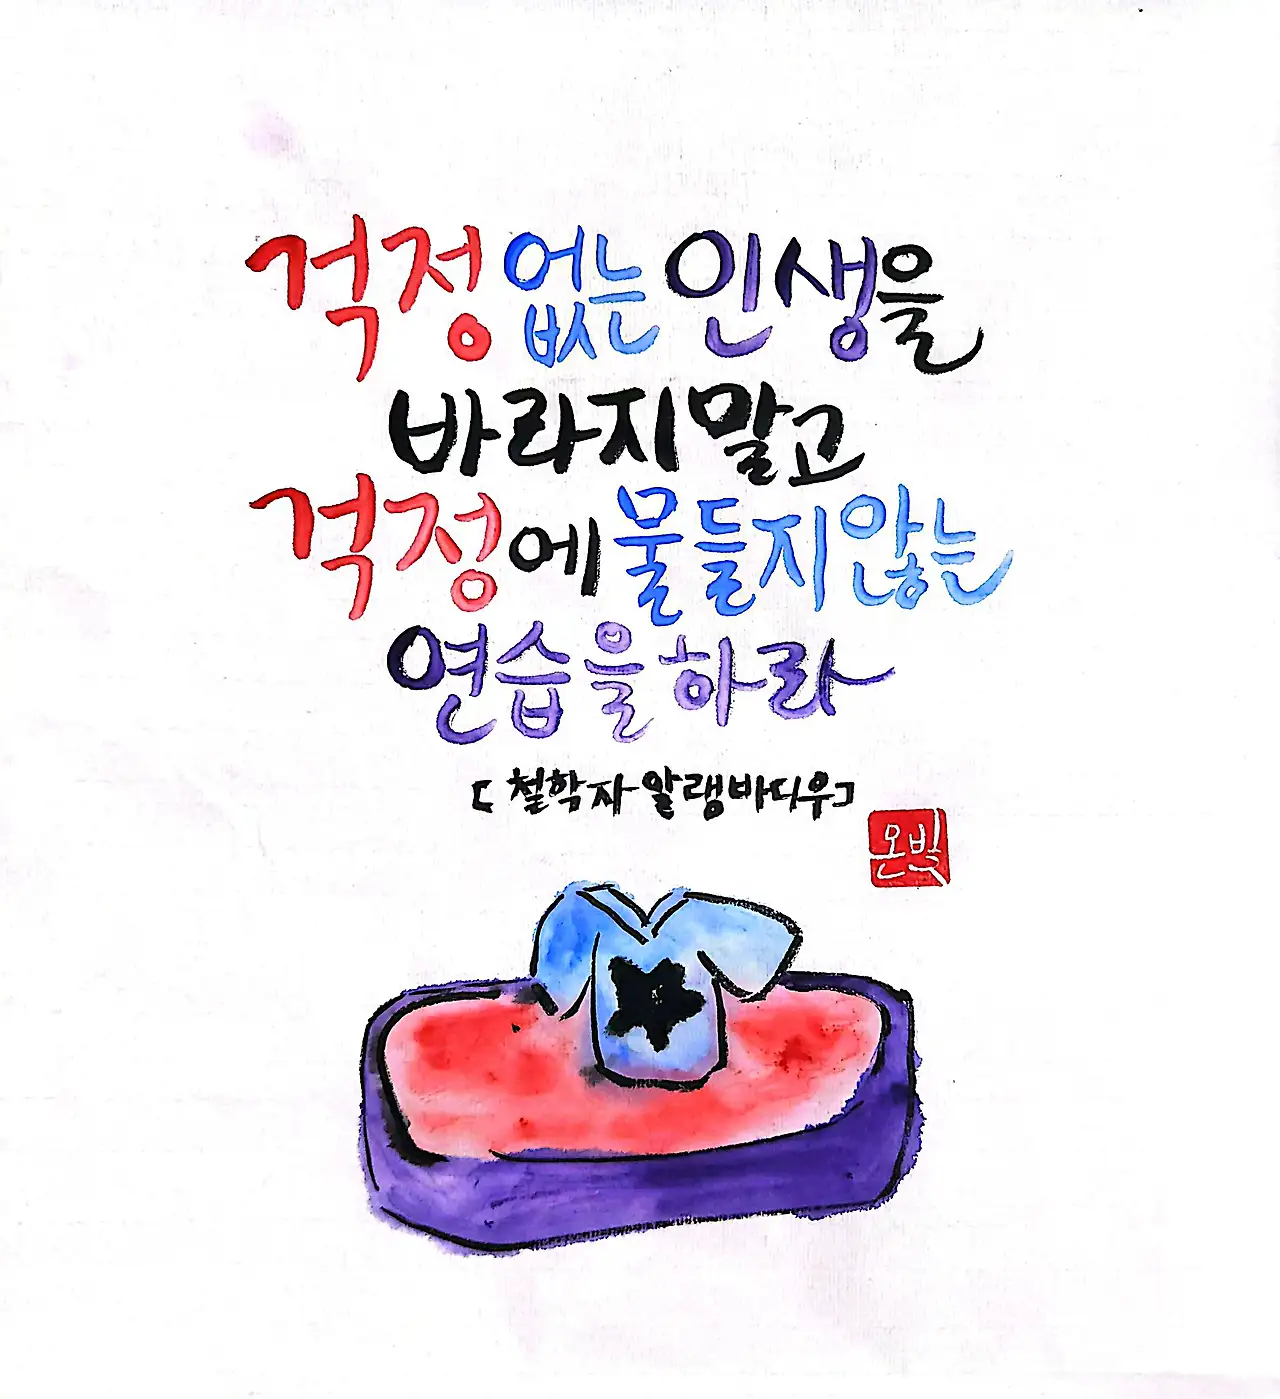 걱정 없는 인생을
바라지 말고
걱정에 물들지 않는
연습을 하라
[철학자 알랭바디우]
온빛